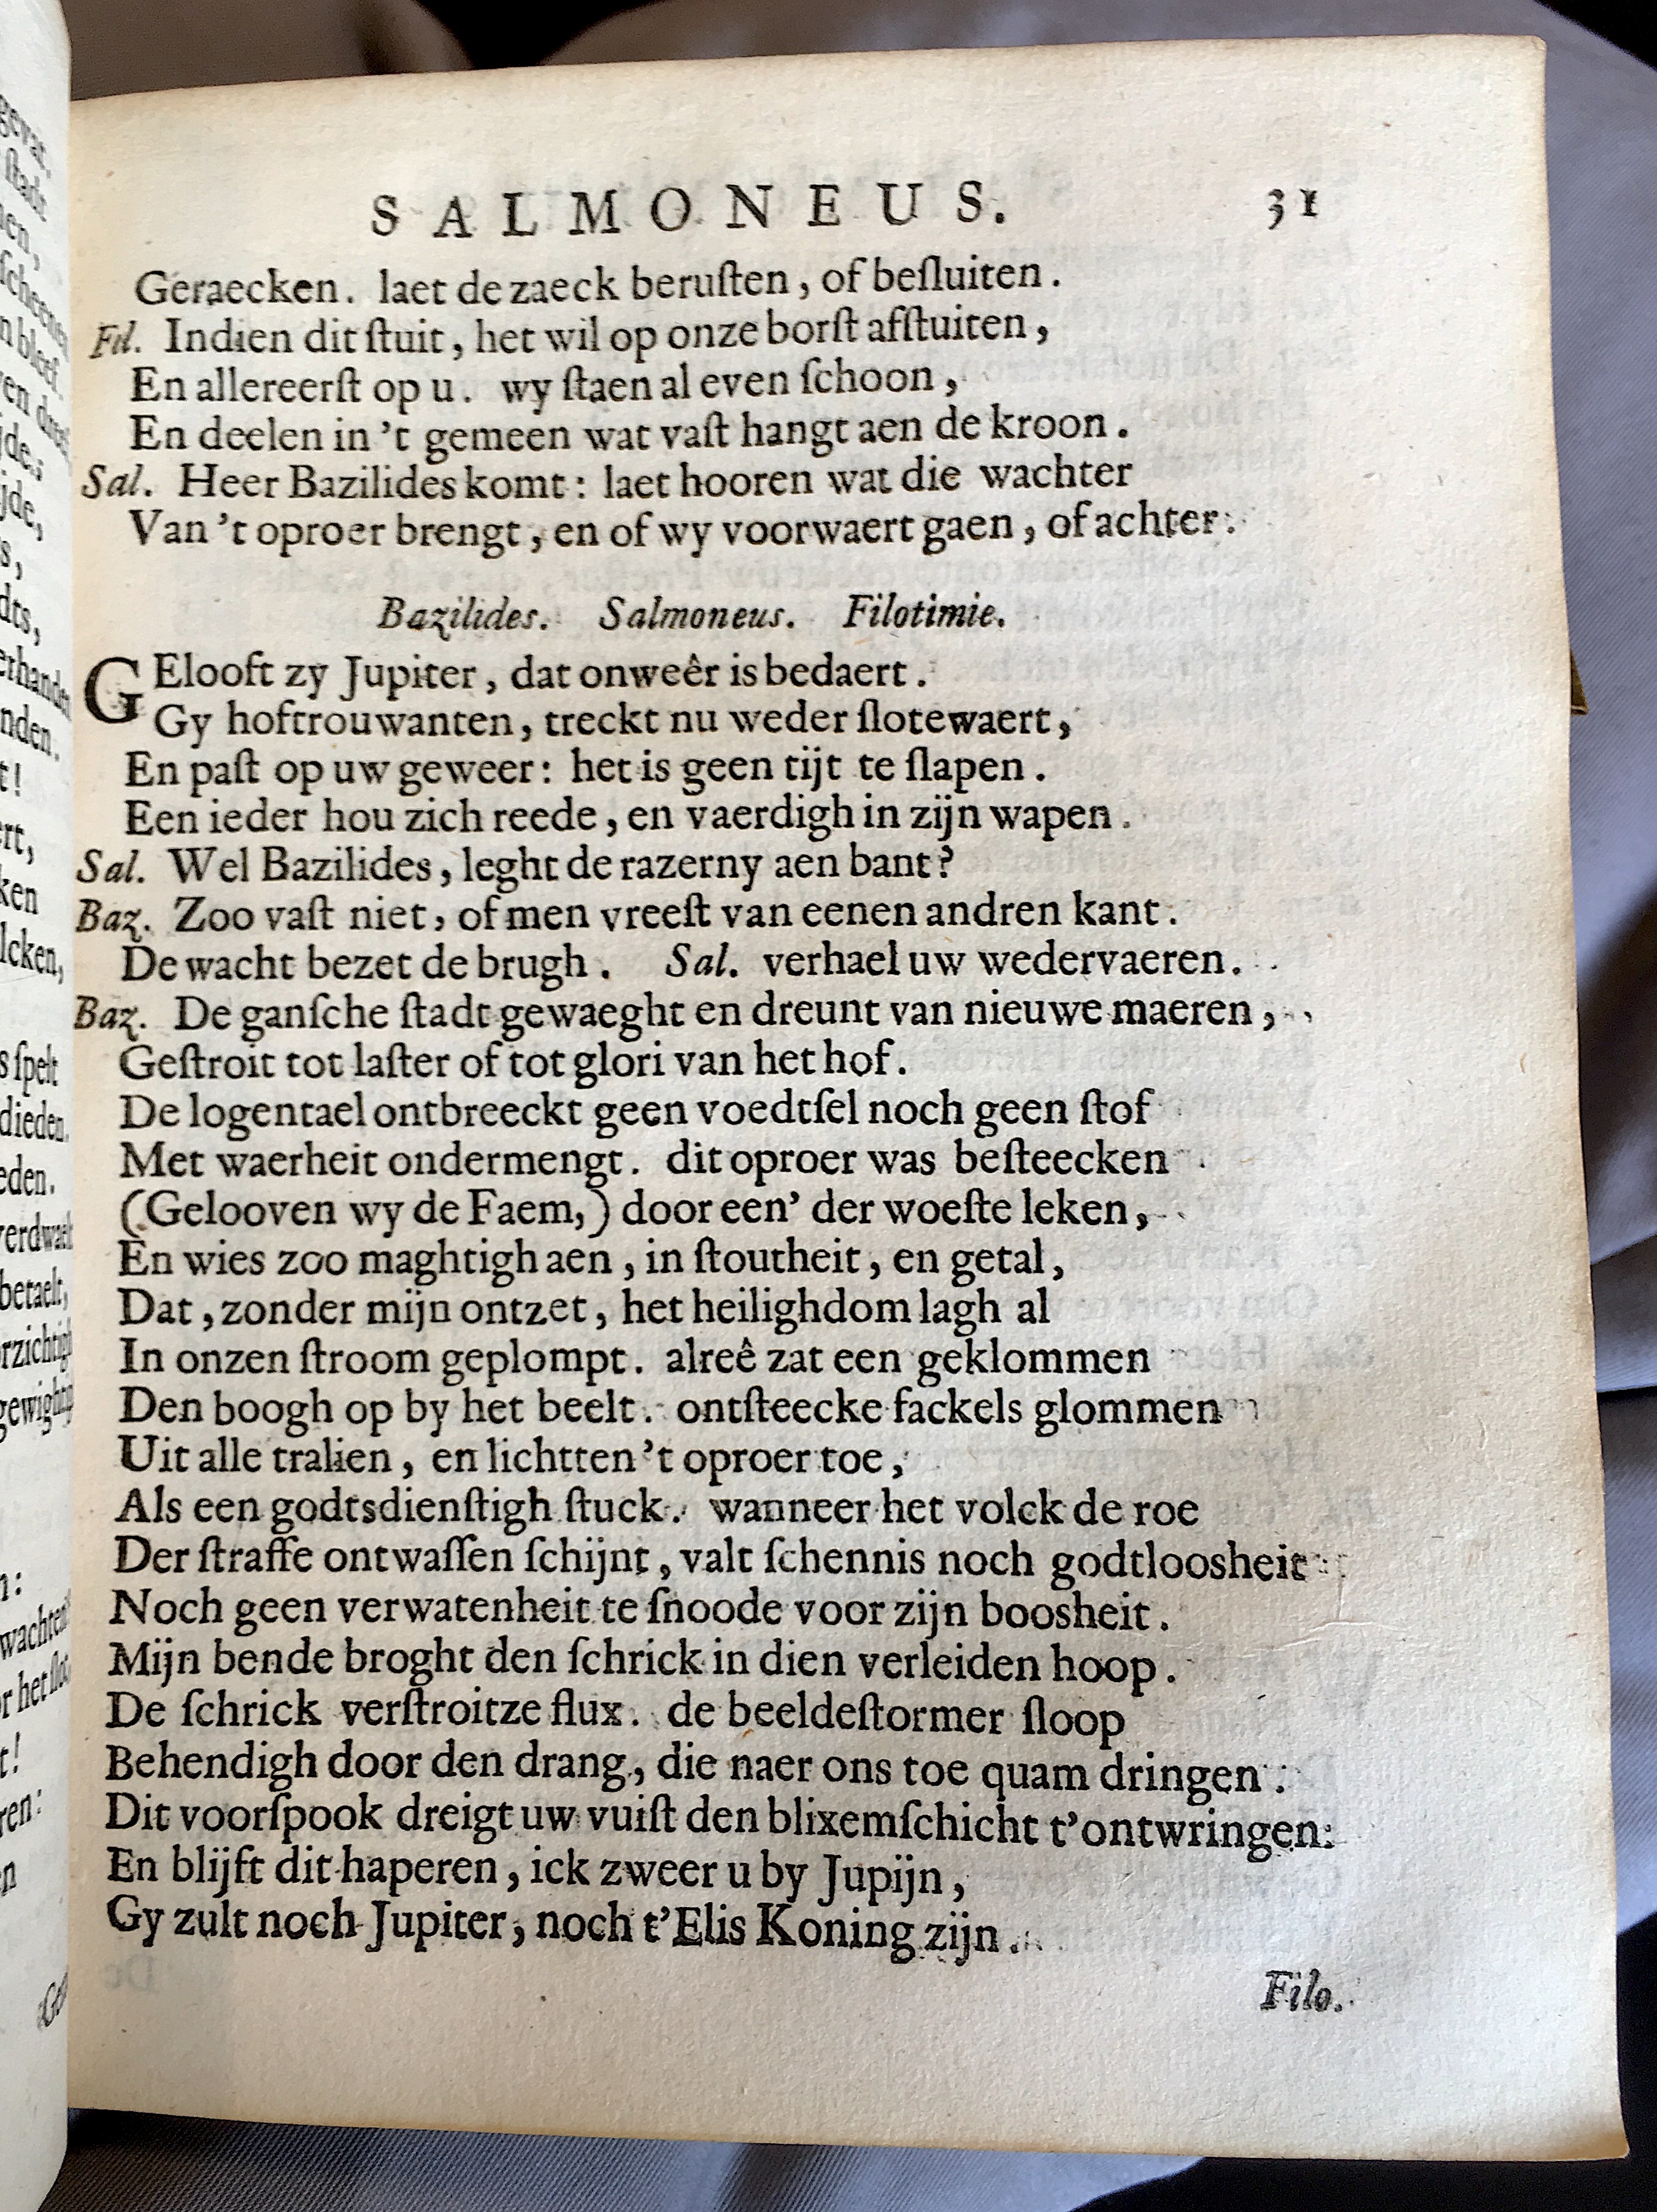 SALMONEUS. 31
Geraecken. laet de zaeck beruſten, of beſluiten.
Fil. Indien dit ſtuit, het wil op onze borſt afſtuiten,
En allereerſt op u. wy ſtaen al even ſchoon,
En deelen in 't gemeen wat vaſt hangt aen de kroon.
Sal. Heer Bazilides komt: laet hooren wat die wachter
Van 't oproer brengt, en of wy voorwaert gaen, of achter.
Bazilides. Salmoneus. Filotimie.
GElooft zy Jupiter, dat onweêr is bedaert.
Gy hoftrouwanten, treckt nu weder ſlotewaert,
En paſt op uw geweer: het is geen tijt te ſlapen.
Een ieder hou zich reede, en vaerdigh in zijn wapen.
Sal. Wel Bazilides, leght de razerny aen bant?
Baz. Zoo vaſt niet, of men vreeſt van eenen andren kant.
De wacht bezet de brugh. Sal. verhael uw wedervaeren.
Baz. De ganſche ſtadt gewaeght en dreunt van nieuwe maeren,
Geſtroit tot laſter of tot glori van het hof.
De logentael ontbreeckt geen voedtſel noch geen ſtof
Met waerheit ondermengt. dit oproer was beſteecken
(Gelooven wy de Faem,) door een' der woeſte leken,
En wies zoo maghtigh aen, in ſtoutheit, en getal,
Dat, zonder mijn ontzet, het heilighdom lagh al
In onzen ſtroom geplompt. alreê zat een geklommen
Den boogh op by het beelt. ontſteecke fackels glommen
Uit alle tralien, en lichtten 't oproer toe,
Als een godtsdienſtigh ſtuck. wanneer het volck de roe
Der ſtraffe ontwaſſen ſchijnt, valt ſchennis noch godtloosheit
Noch geen verwatenheit te ſnoode voor zijn boosheit.
Mijn bende broght den ſchrick in dien verleiden hoop.
De ſchrick verſtroitze flux. de beeldeſtormer ſloop
Behendigh door den drang, die naer ons toe quam dringen.
Dit voorſpook dreigt uw vuiſt den blixemſchicht t'ontwringen:
En blijft dit haperen, ick zweer u by Jupijn,
Gy zult noch Jupiter, noch t'Elis Koning zijn.
Filo.